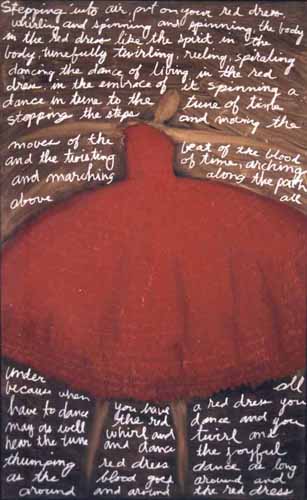 Stepping into air, put on your red dress,
whirling and spinning and spinning, the body
in the red dress like the spirit in the
body, tunefully twirling, reeling, spiraling
dancing the dance of living in the red
dress, in the embrace of it spinning a
dance in tune to the tune of time
stopping the steps and moving the
moves of the beat of the blood
and the twisting of time, arching
and marching along the path
above all
under all
because when you have a red dress you
have to dance the red dance and you
may as well whirl and twirl and
hear the tune and dance the joyful
thumping red dress dance as long
as the blood goes around and
around and around the red dress.